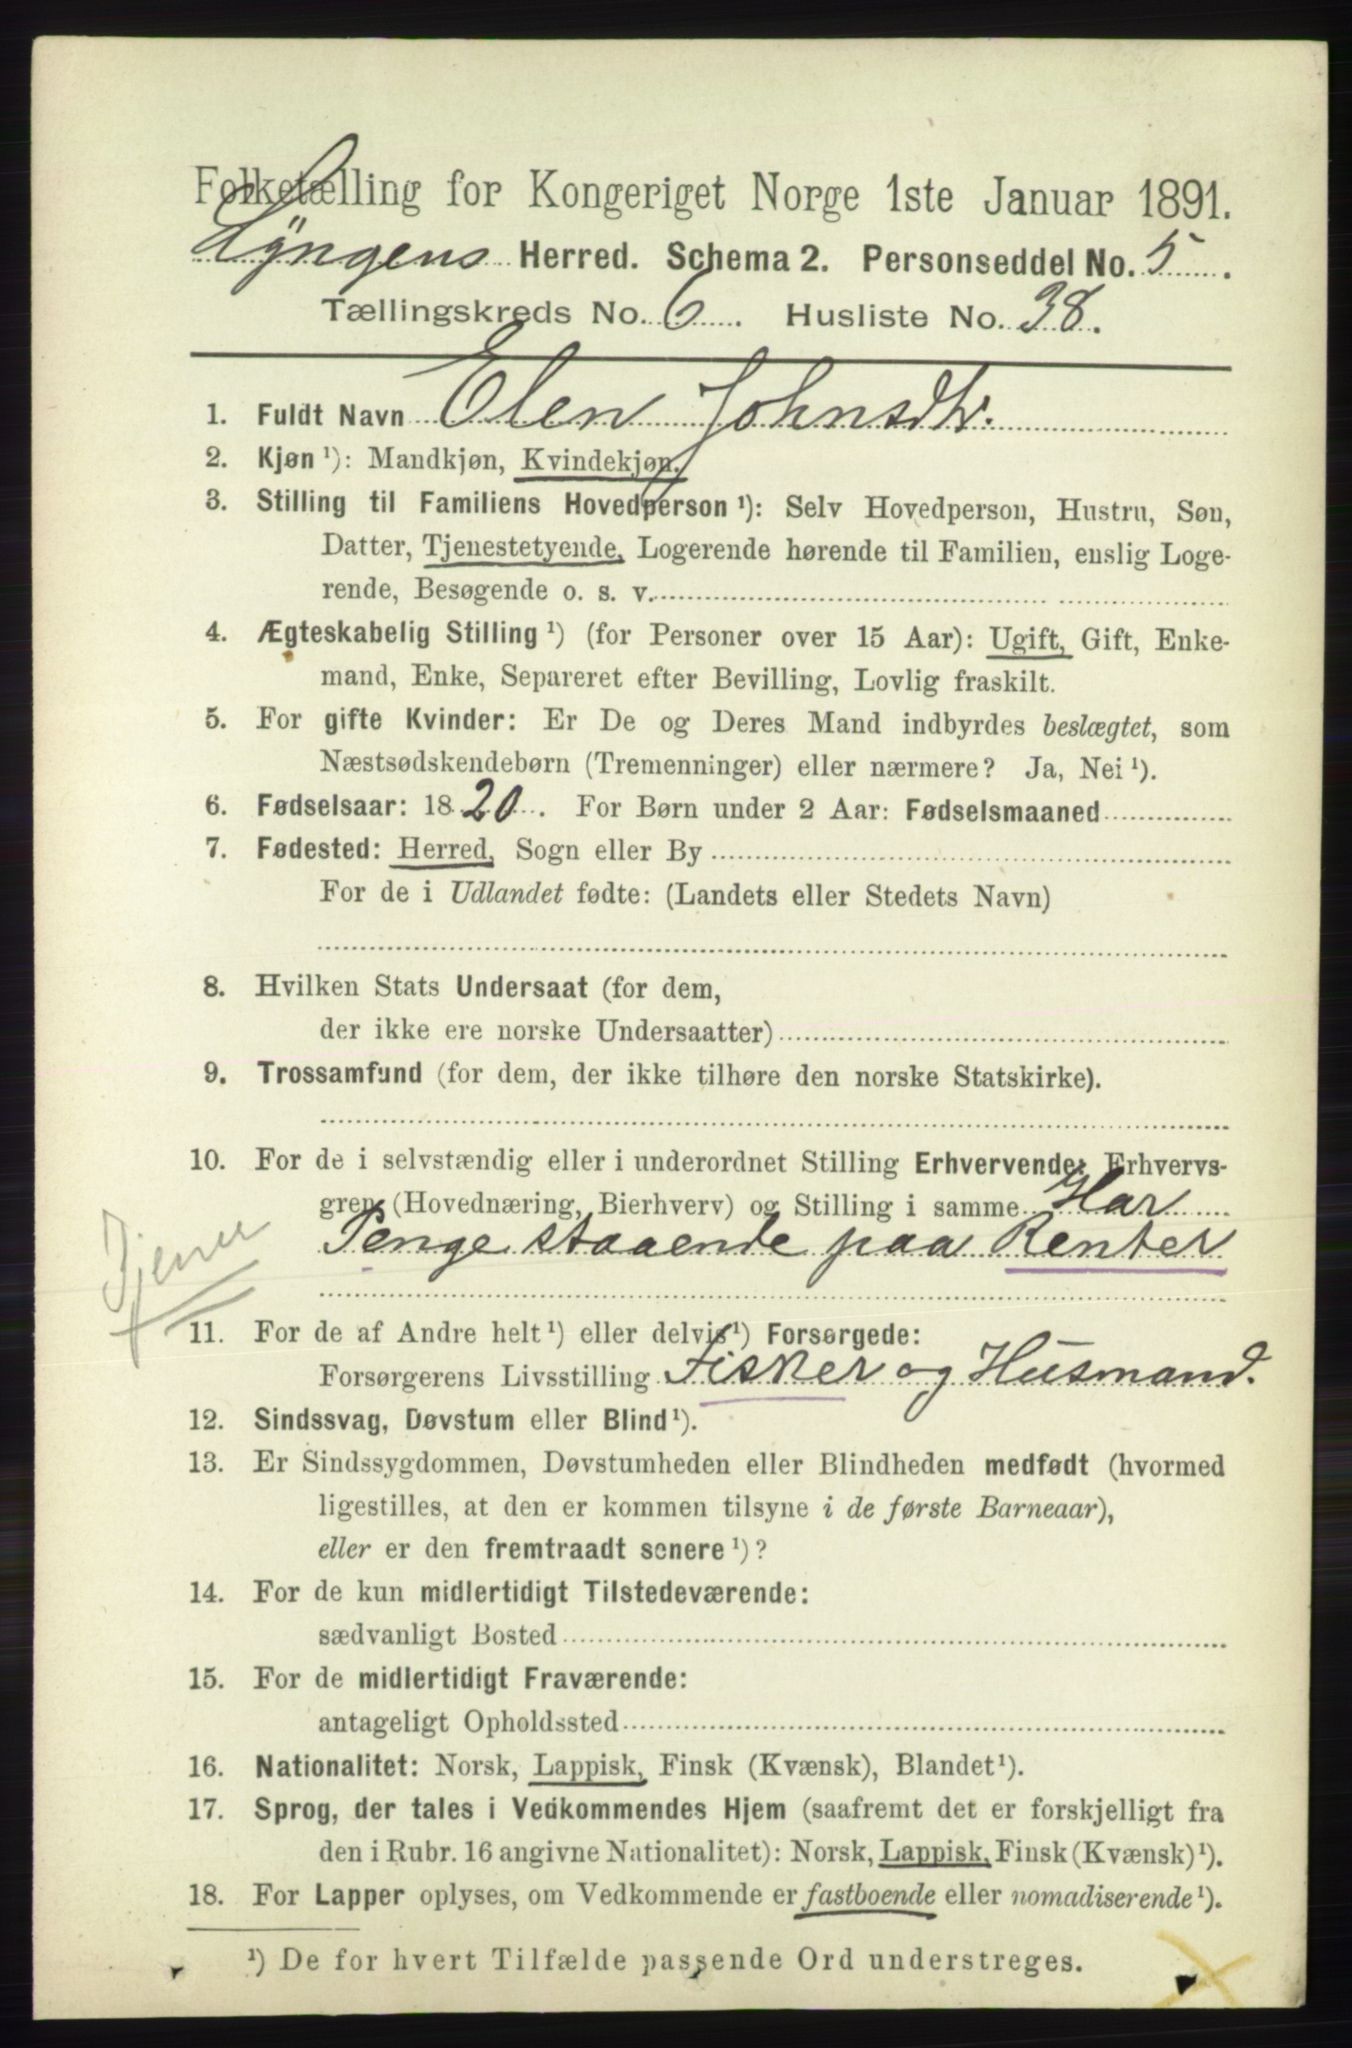 Folketælling for Kongeriget Norge 1ste Januar 1891.
Lyngens Herred. Schema 2. Personseddel No. 5.
Tællingskreds No. 6. Husliste No. 38.
1. Fuldt Navn Elen Johnsdtr.
2. Kjøn ¹): Mandkjøn, Kvindekjøn.
3. Stilling til Familiens Hovedperson ¹): Selv Hovedperson, Hustru, Søn,
Datter, Tjenestetyende, Logerende hørende til Familien, enslig Loge-
rende, Besøgende o. s. v.
4. Ægteskabelig Stilling ¹) (for Personer over 15 Aar): Ugift, Gift, Enke-
mand, Enke, Separeret efter Bevilling, Lovlig fraskilt.
5. For gifte Kvinder: Er De og Deres Mand indbyrdes beslægtet, som
Næstsødskendebørn (Tremenninger) eller nærmere? Ja, Nei ¹).
6. Fødselsaar: 1820. For Børn under 2 Aar: Fødselsmaaned
7. Fødested: Herred, Sogn eller By
For de i Udlandet fødte: (Landets eller Stedets Navn)
8. Hvilken Stats Undersaat (for dem,
der ikke ere norske Undersaatter)
9. Trossamfund (for dem, der ikke tilhøre den norske Statskirke).
10. For de i selvstændig eller i underordnet Stilling Erhvervende: Erhvervs-
gren (Hovednæring, Bierhverv) og Stilling i samme Har
Penge staaende paa Renter
Tjener
11. For de af Andre helt ¹) eller delvis ¹) Forsørgede:
Forsørgerens Livsstilling Fisker og Husmand.
12. Sindssvag, Døvstum eller Blind ¹).
13. Er Sindssygdommen, Døvstumheden eller Blindheden medfødt (hvormed
ligestilles, at den er kommen tilsyne i de første Barneaar),
eller er den fremtraadt senere ¹)?
14. For de kun midlertidigt Tilstedeværende:
sædvanligt Bosted
15. For de midlertidigt Fraværende:
antageligt Opholdssted
16. Nationalitet: Norsk, Lappisk, Finsk (Kvænsk), Blandet ¹).
17. Sprog, der tales i Vedkommendes Hjem (saafremt det er forskjelligt fra
den i Rubr. 16 angivne Nationalitet): Norsk, Lappisk, Finsk (Kvænsk) ¹).
18. For Lapper oplyses, om Vedkommende er fastboende eller nomadiserende ¹).
¹) De for hvert Tilfælde passende Ord understreges.